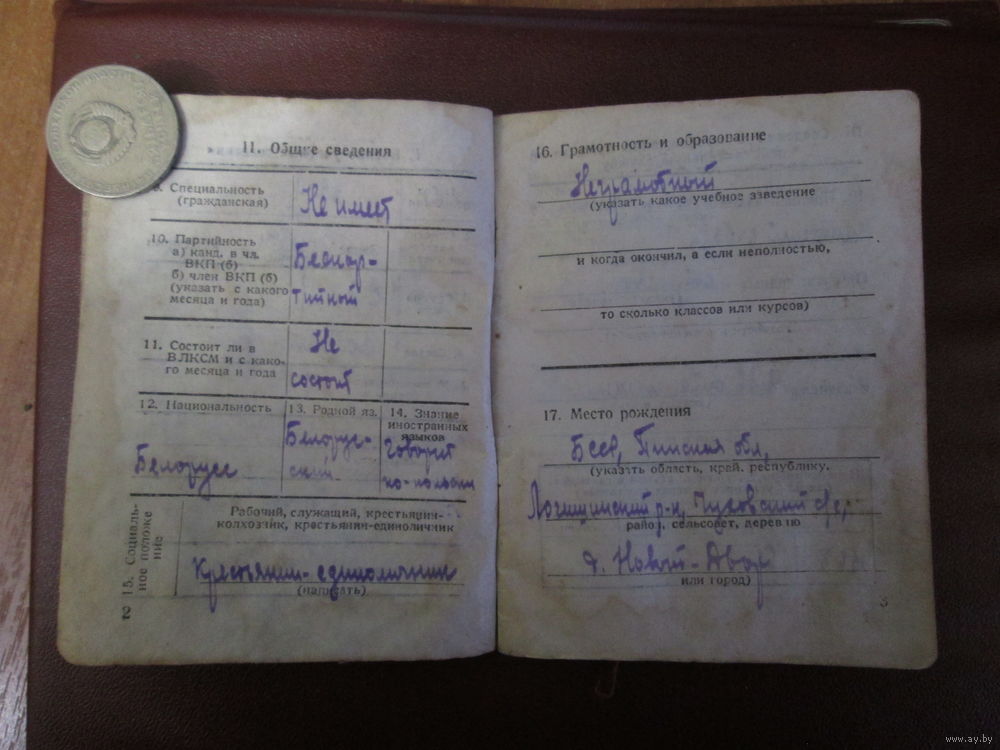 11. Общие сведения
9. Специальность
(гражданская)
Не имеет
10. Партийность
а) канд. в чл.
ВКП (б)
б) член ВКП (б)
(указать с какого
месяца и года)
Беспар-
тийный
11. Состоит ли в
ВЛКСМ и с како-
го месяца и года
Не
состоит
12. Национальность
Белорусс
13. Родной яз.
Белорус-
ский
14. Знание
иностранных
языков
Говорит
по-польски
15. Социаль-
ное положе
ние
Рабочий, служащий, крестьянин-
колхозник, крестьянин-единоличник
Крестьянин-единоличник
(написать)
2
16. Грамотность и образование
Неграмотный
(указать какое учебное заведение
и когда окончил, а если неполностью,
то сколько классов или курсов)
17. Место рождения
БССР, Пинская обл,
(указать область, край, республику,
Логишинский р-н, Чуховский с/с,
район, сельсовет, деревню
д. Новый-Двор
или город)
3
www.ay.by